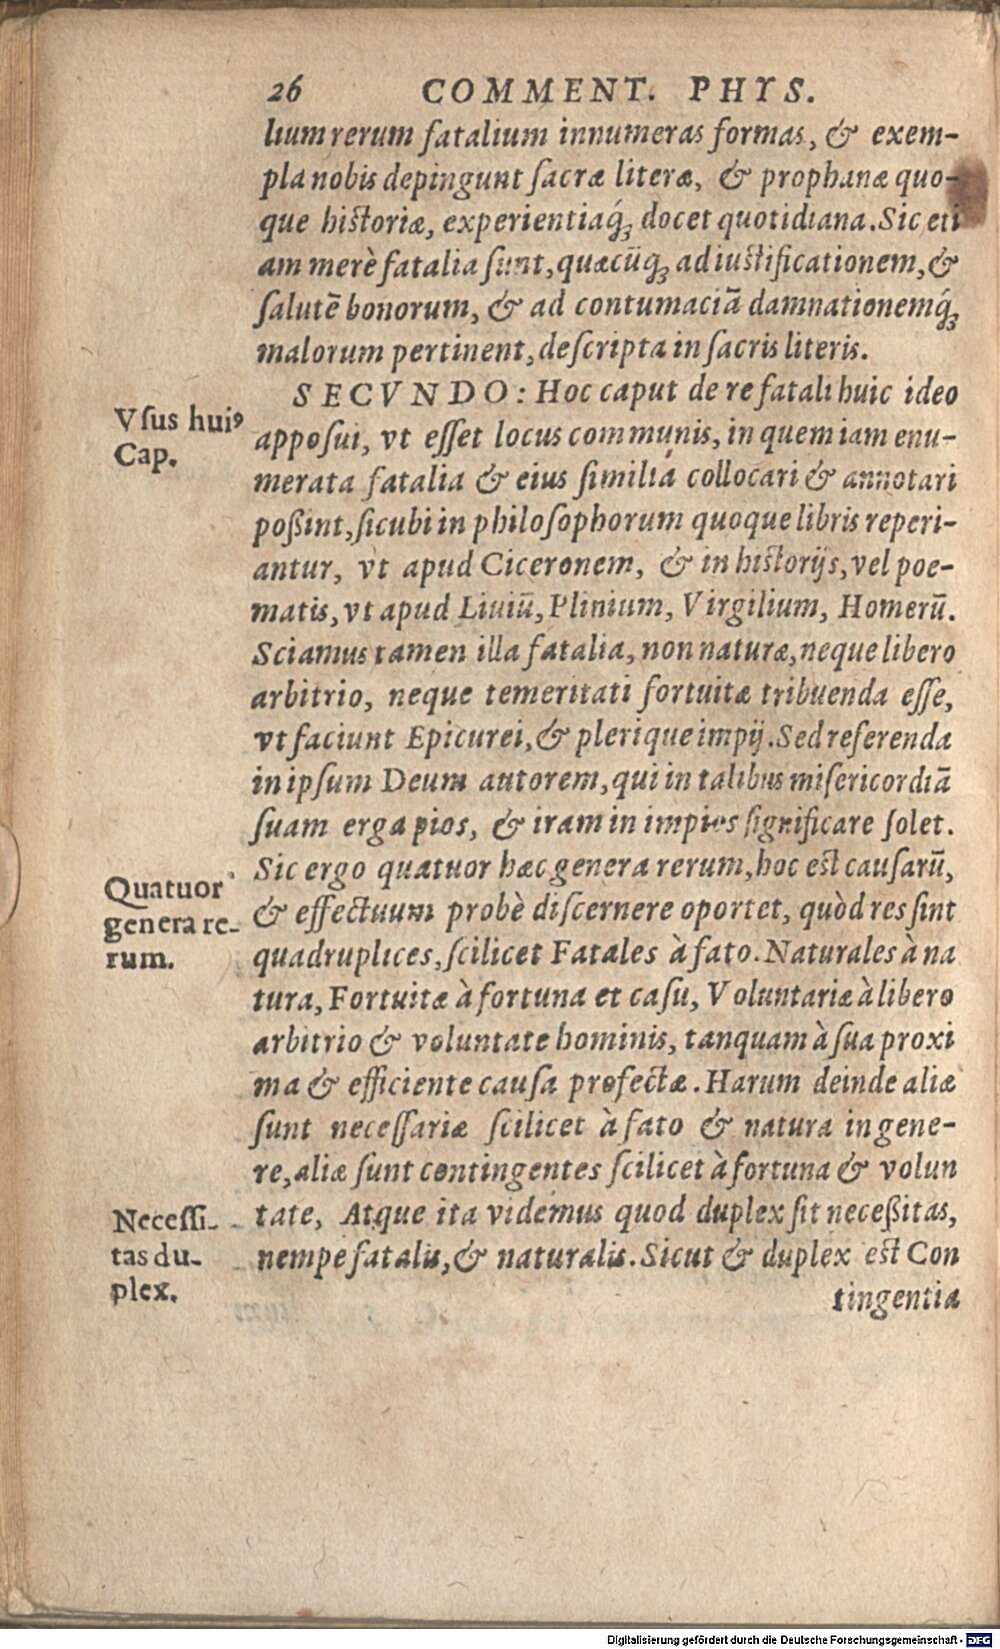 26 COMMENT. PHYS.
lium rerum fatalium innumeras formas, & exem-
pla nobis depingunt sacræ literæ, & prophanæ quo-
que historiæ, experientiaq́ꝫ docet quotidiana. Sic eti
am merè fatalia sunt, quæcũqꝫ ad iustificationem, &
salutẽ bonorum, & ad contumaciã damnationemq́ꝫ
malorum pertinent, descripta in sacris literis.
SECVNDO: Hoc caput de re fatali huic ideo
Vsus huiꝰ
Cap.
apposui, vt esset locus communis, in quem iam enu-
merata fatalia & eius similia collocari & annotari
poßint, sicubi in philosophorum quoque libris reperi-
antur, vt apud Ciceronem, & in historijs, vel poe-
matis, vt apud Liuiũ, Plinium, Virgilium, Homerũ.
Sciamus tamen illa fatalia, non naturæ, neque libero
arbitrio, neque temeritati fortuitæ tribuenda esse,
vt faciunt Epicurei, & plerique impij. Sed referenda
in ipsum Deum autorem, qui in talibus misericordiã
suam erga pios, & iram in impios significare solet.
Sic ergo quatuor hæc genera rerum, hoc est causarũ,
Quatuor
genera re-
rum.
& effectuum probè discernere oportet, quòd res sint
quadruplices, scilicet Fatales à fato. Naturales à na
tura, Fortuitæ à fortuna et casu, Voluntariæ à libero
arbitrio & voluntate hominis, tanquam à sua proxi
ma & efficiente causa profectæ. Harum deinde aliæ
sunt necessariæ scilicet à fato & natura in gene-
re, aliæ sunt contingentes scilicet à fortuna & volun
Necessi-
tas du-
plex.
tate, Atque ita videmus quod duplex sit neceßitas,
nempe fatalis, & naturalis. Sicut & duplex est Con
tingentia
Digitalisierung gefördert durch die Deutsche Forschungsgemeinschaft - DFG